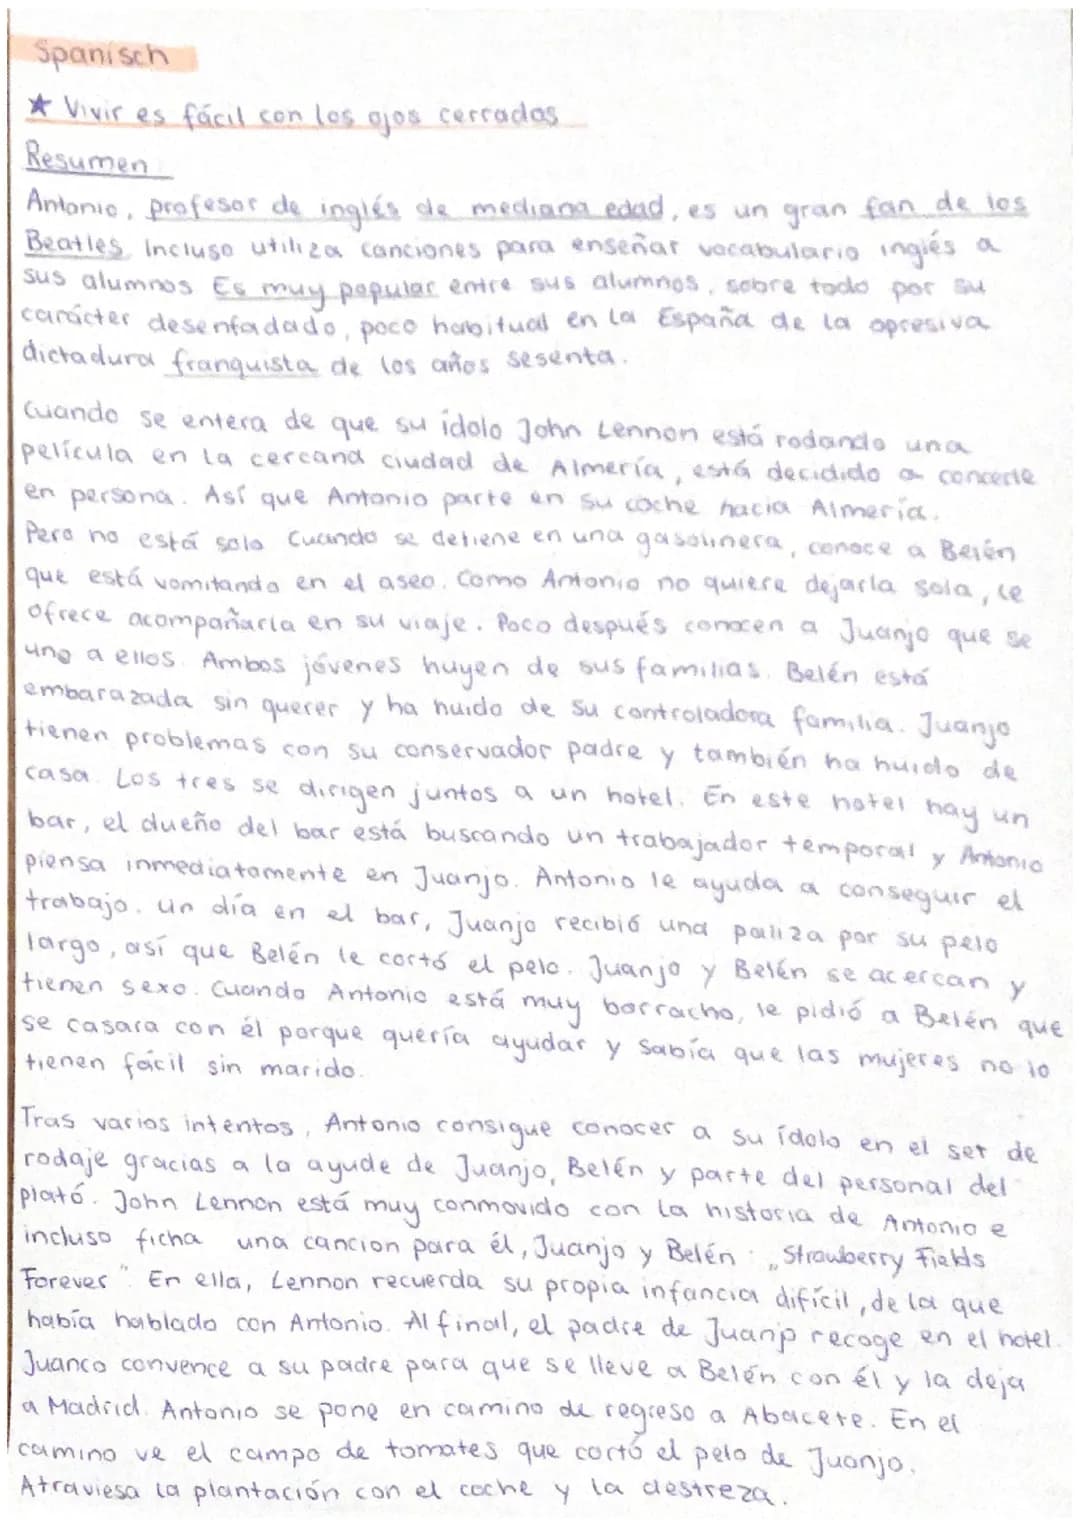 Spanisch
★ Vivir es fácil con los ojos cerrados
Resumen
Antonio, profesor de inglés de mediana edad, es un gran fan de los
Beatles. Incluso utiliza canciones para enseñar vocabulario inglés a
sus alumnos. Es muy popular entre sus alumnos, sobre todo por su
carácter desenfadado, poco habitual en la España de la opresiva
dictadura franquista de los años sesenta.
Cuando se entera de que su ídolo John Lennon está rodando una
película en la cercana ciudad de Almería, está decidido a concerle
en persona. Así que Antonio parte en su coche hacia Almería.
Pero no está solo. Cuando se detiene en una gasolinera, conoce a Belén
que está vomitando en el aseo. Como Antonio no quiere dejarla sola, le
ofrece acompañarla en su viaje. Poco después conocen a Juanjo que se
uno a ellos. Ambos jóvenes huyen de sus familias. Belén está
embarazada sin querer y ha huido de su controladora familia. Juanjo
tienen problemas con su conservador padre y también ha huido de
casa. Los tres se dirigen juntos a un hotel. En este hotel hay un
bar, el dueño del bar está buscando un trabajador temporal y Antonio
piensa inmediatamente en Juanjo. Antonio le ayuda a conseguir el
trabajo. Un día en el bar, Juanjo recibió una paliza por su pelo
largo, así que Belén le cortó el pelo. Juanjo y Belén se acercan y
tienen sexo. Cuando Antonio está muy borracho, le pidió a Belén que
se casara con él porque quería ayudar y sabía que las mujeres no lo
tienen fácil sin marido.
Tras varios intentos, Antonio consigue conocer a su ídolo en el set de
rodaje gracias a la ayude de Juanjo, Belén y parte del personal del
plató. John Lennon está muy conmovido con la historia de Antonio e
incluso ficha una cancion para él, Juanjo y Belén: „Strawberry Fields
Forever". En ella, Lennon recuerda su propia infancia difícil, de la que
había hablado con Antonio. Al final, el padre de Juanjo recoge en el hotel.
Juanco convence a su padre para que se lleve a Belén con él y la deja
a Madrid. Antonio se pone en camino de regreso a Abacete. En el
camino ve el campo de tomates que cortó el pelo de Juanjo.
Atraviesa la plantación con el coche y la destreza.